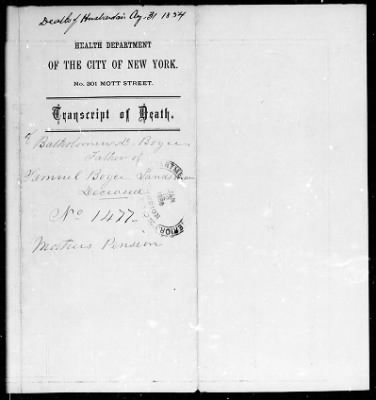 Death of Husband Aug. 31 1884
HEALTH DEPARTMENT
OF THE CITY OF NEW YORK.
No. 301 MOTT STREET.
Transcript of Death.
Bartholomew Boyer
Father of
Samuel Boyer Landsman
Deceased
No 1477
Mothers Pension